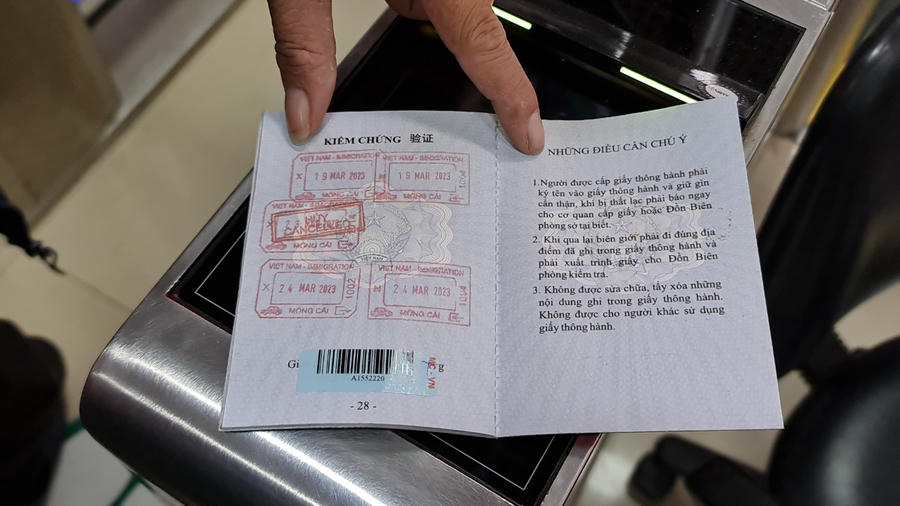 KIỂM CHỨNG 验证
VIET NAM - IMMIGRATION
X 19 MAR 2023
MÓNG CÁI
VIET NAM - IMMIGRATION
19 MAR 2023
MÓNG CÁI
HỦY
CANCELLED
MÓNG CÁI
VIET NAM - IMMIGRATION
X 24 MAR 2023
1002
MÓNG CÁI
VIET NAM - IMMIGRATION
24 MAR 2023
MÓNG CÁI
Gi
g
MC - VN
A1552220
- 28 -
NHỮNG ĐIỀU CẦN CHÚ Ý
1.Người được cấp giấy thông hành phải
ký tên vào giấy thông hành và giữ gìn
cẩn thận, khi bị thất lạc phải báo ngay
cho cơ quan cấp giấy hoặc Đồn Biên
phòng sở tại biết.
2. Khi qua lại biên giới phải đi đúng địa
điểm đã ghi trong giấy thông hành và
phải xuất trình giấy cho Đồn Biên
phòng kiểm tra.
3. Không được sửa chữa, tẩy xóa những
nội dung ghi trong giấy thông hành.
Không được cho người khác sử dụng
giấy thông hành.